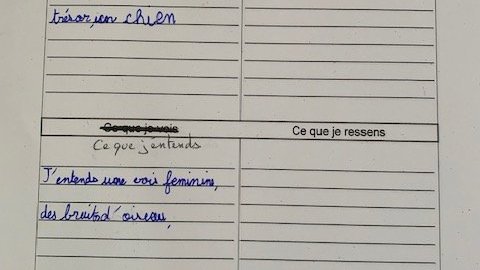 trésor, un chien
Ce que je vois
Ce que je ressens
Ce que j'entends
J'entends une voie feminine,
des bruits d'oiseau,